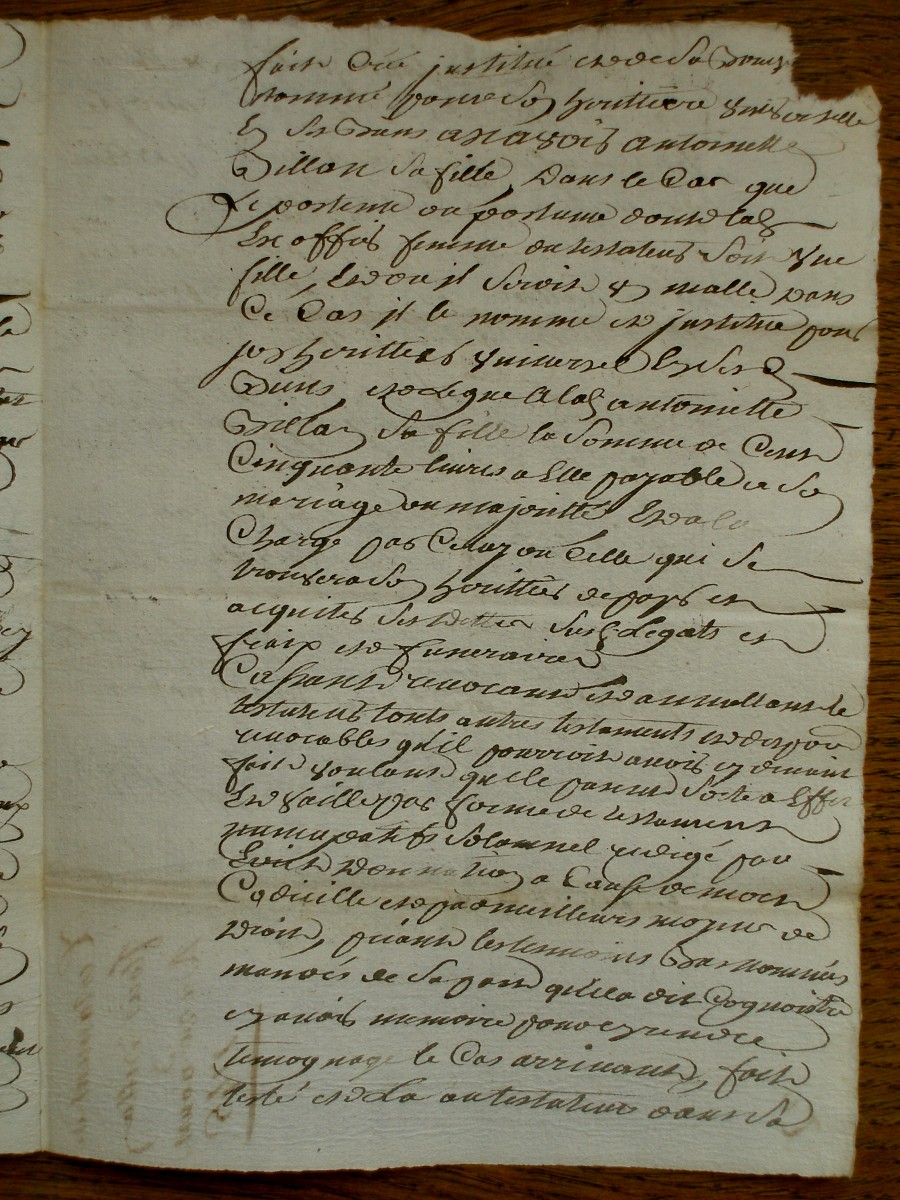 faict Créé justitué et de sa bouche
nommé pour son herittiere universelle
En ses biens asscavoir antoinette
Villan sa fille, dans le Cas que
Le postume ou postume dont lad
Ex offis femme du testateur soit une
fille, Et ou il seroit un malle dans
Ce Cas il le nomme et justitue pour
son herittier universel En ses
Biens et legue a lad antoinette
Villan sa fille la somme de Cent
Cinquante livres a Elle payable a son
mariage ou majoritté Et a la
Charge par Celuy ou Celle qui se
trouvera son herittier de payer et
acquiter ses dettes susd Legats et
fraix et funeraires
Cassant revocant et annullant le
testateur touts autres testaments et dispo
revocables qu'il pourroit avoir cy devant
fait voulant que le present sorte a Effet
Et vaille par forme de testament
nuncupatif solomnel redigé par
Écrit donnation a Cause de mort
Codicille et par meilleurs moyens de
Droit, priant les temoins bas nommés
mandés de sa part qu'il a dit Cognoitre
en avoir memoire pour en rendre
temognage le Cas arrivant, fait
testé et Lû au testateur dans sa